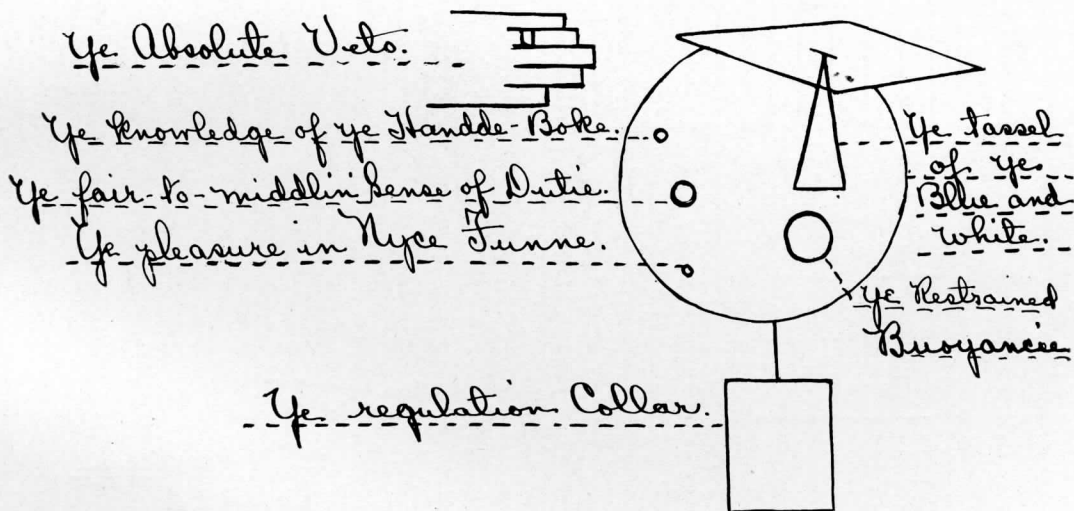 Ye Absolute Veto.
Ye Knowledge of ye Handde-Boke.
Ye fair-to-middlin Sense of Dutie.
Ye pleasure in Nyce Funne.
Ye tassel
of ye
Blue and
White.
Ye Restrained
Buoyancie
Ye regulation Collar.